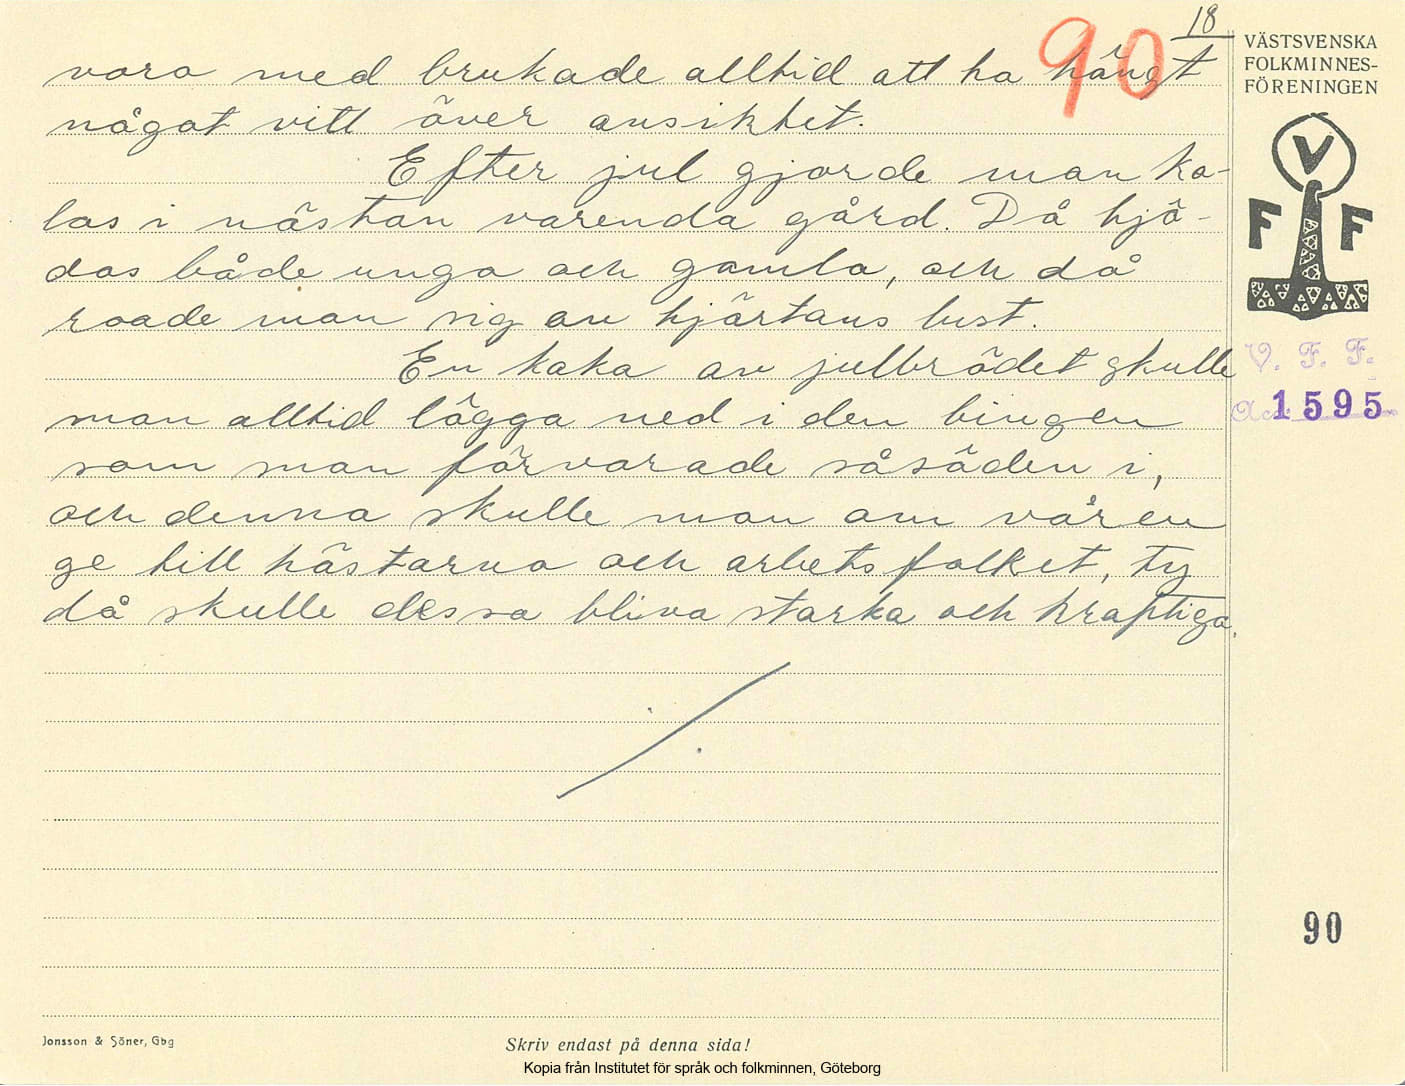 18
90
vara med brukade alltid att ha hängt
något vitt över ansiktet.
Efter jul gjorde man ka-
las i nästan varenda gård. Då bjö-
das både unga och gamla, och då
roade man sig av hjärtans lust.
En kaka av julbrödet skulle
man alltid lägga ned i den bingen
som man förvarade såsäden i,
och denna skulle man om våren
ge till hästarna och arbetsfolket, ty
då skulle dessa bliva starka och kraftiga.
VÄSTSVENSKA
FOLKMINNES-
FÖRENINGEN
V
F F
V. F. F.
Acc. 1595
90
Jonsson & Söner, Gbg
Skriv endast på denna sida!
Kopia från Institutet för språk och folkminnen, Göteborg